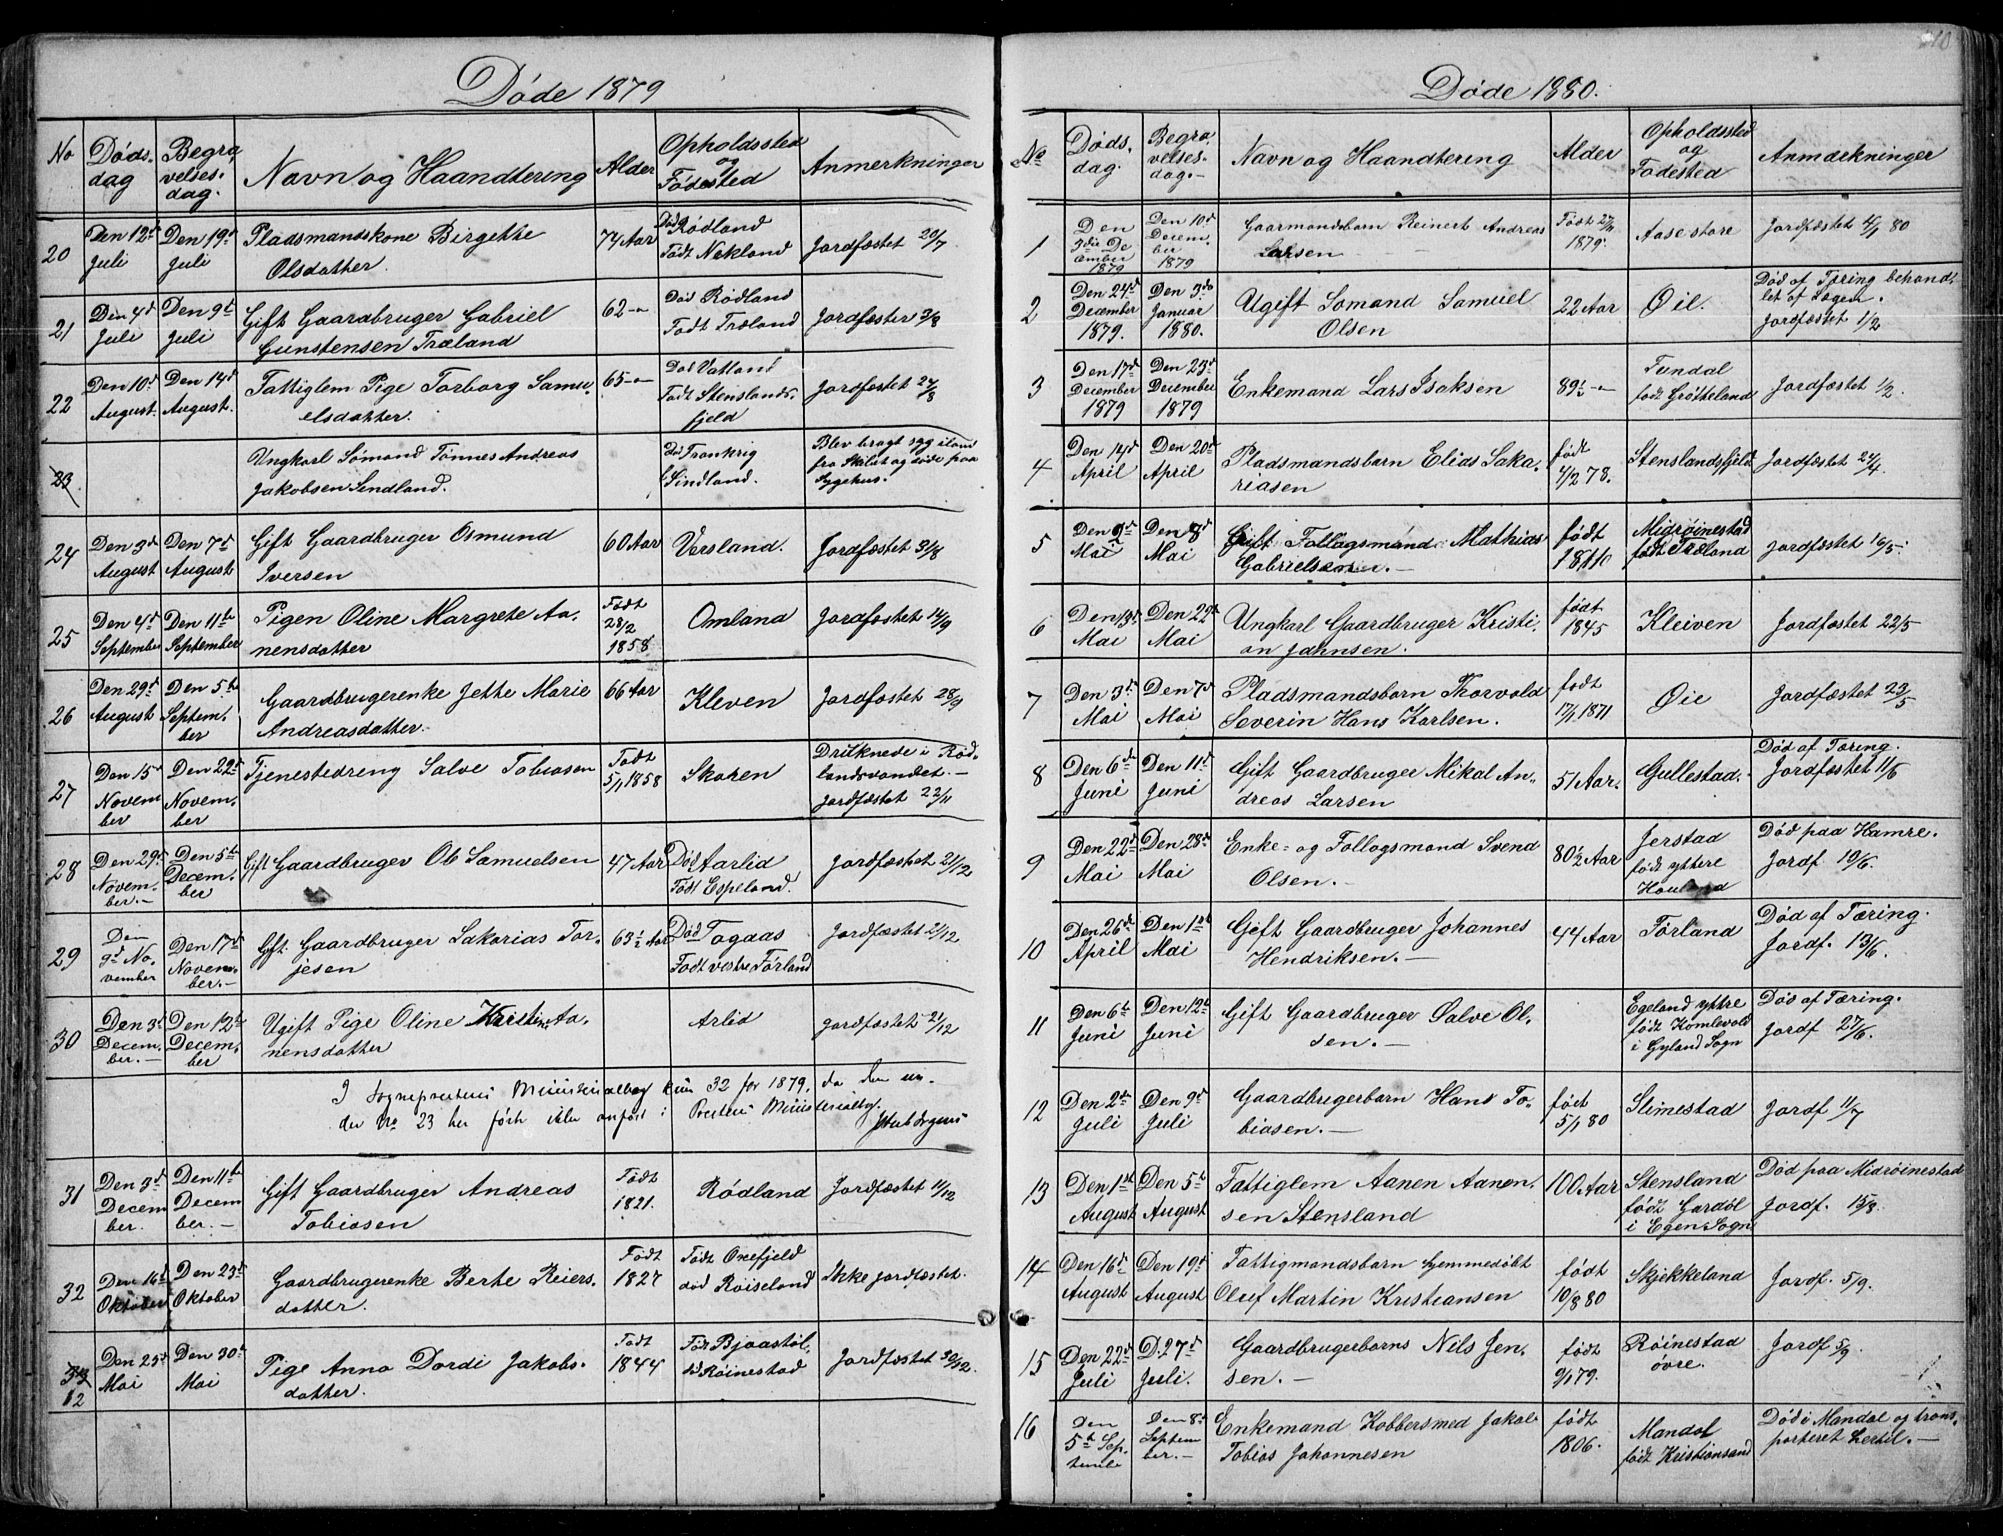 Døde 1879
No
Døds-
dag
Begra-
velses-
dag.
Navn og Haandtering
Alder
Opholdssted
og
Fødested
Anmerkninger
20
Den 12te
Juli
Den 19de
Juli
Pladsmandskone Birgethe
Olsdatter.
74 Aar
Død Rødland
Født Nekland
Jordfæstet 20/7
21
Den 4de
Juli
Den 9de
Juli
Gift Gaardbruger Gabriel
Gunstensen Træland
62 –"–
Død Rødland
Født Træland
Jordfæstet 3/8
22
Den 10de
August.
Den 14de
August.
Fattiglem Pige Torborg Samu-
elsdatter.
65 –"–
Død Vatland
Født Stenslands-
fjeld
Jordfæstet 24/8
23.
Ungkarl Sømand Tønnes Andreas
Jakobsen Sindland.
Død Frankrig
f. Sindland.
Blev bragt syg iland
fra Skibet og døde paa
Sygehus.
24
Den 3de
August
Den 7de
August
Gift Gaardbruger Osmund
Iversen
60 Aar
Versland.
Jordfæstet 31/8
25
Den 4de
September
Den 11te
September
Pigen Oline Margrete Aa-
nensdatter
Født
28/2
1858
Omland
Jordfæstet 14/9
26
Den 29de
August
Den 5te
Septem-
ber
Gaardbrugerenke Jette Marie
Andreasdatter.
66 Aar
Kleven
Jordfæstet 28/9
27
Den 15de
Novem
ber
Den 22de
Novem-
ber
Tjenestedreng Salve Tobiasen
Født
5/1 1858
Skoren
Druknede i Rød-
landsvandet.–
Jordfæstet 22/11
28
Den 29de
Novem-
ber.–
Den 5te
Decem-
ber
Gift Gaardbruger Ole Samuelsen
47 Aar
Død Aarlid
Født Espeland.
Jordfæstet 21/12
29
Den
9de No-
vember
Den 17de
Novem-
ber.–
Gift Gaardbruger Sakarias Tor-
jesen
63½ Aar
Død Fogaas
Født vestre Førland
Jordfæstet 21/12
30
Den 3de
Decem-
ber.–
Den 12te
Decem-
ber
Ugift Pige Oline Kristine Aa-
nensdatter
Arlid
Jordfæstet 21/12
I Sognepræstens Ministerialbog kun 32 for 1879, da den un-
der No 23 her førte ikke anført i Præstens Ministerialbog.
31
Den 3de
Decem
ber.
Den 11te
Decem
ber.–
Gift Gaardbruger Andreas
Tobiasen
Født
1821.
Rødland
Jordfæstet 11/12
32
Den 16de
Oktober
Den 23de
Oktober
Gaardbrugerenke Berte Reiers-
datter.
Født
1827
Født Oxefjeld
død Røiseland
Ikke jordfæstet.
33
12
Den 25de
Mai
Den 30te
Mai
Pige Anna Dordi Jakobs-
datter.
Født
1844
Født Bjaastøl,
død Røinestad
Jordfæstet 30/12.
Døde 1880.
No
Døds-
dag.
Begra-
velses-
dag.–
Navn og Haandtering
Alder
Opholdssted
og
Fødested
Anmærkninger
1
Den
5die De
cember
1879
Den 10de
Decem-
ber
1879
Gaarmandsbarn Reinert Andreas
Larsen –
Født 27/11
1879.
Aase store
Jordfæstet 4/1 80
2
Den 24de
December
1879.
Den 3die
Januar
1880.
Ugift Sømand Samuel
Olsen
22 Aar
Øie.
Død af Tæring behand-
let af Lægen.
Jordfæstet 1/2
3
Den 17de
December
1879
Den 23de
December
1879
Enkemand Lars Isaksen
89½ –"–
Tundal
født Grøtteland
Jordfæstet 1/2.
4
Den 14de
April
Den 20de
April
Pladsmandsbarn Elias Saka-
riasen
født
4/2 78.
Stenslandsfjeld
Jordfæstet 24/4.
5
Den 2de
Mai
Den 8de
Mai
Gift Follagsmand Mathias
Gabrielsen.–
født
1810
Midrøinestad
født Træland
Jordfæstet 16/5.
6
Den 13de
Mai
Den 22de
Mai
Ungkarl Gaardbruger Kristi-
an Jahnsen.
født
1845
Kleiven
Jordfæstet 22/5
7
Den 3die
Mai
Den 7de
Mai
Pladsmandsbarn Thorvald
Severin Hans Karlsen.
født
17/1 1871
Øie
Jordfæstet 23/5
8
Den 6te
Juni
Den 11te
Juni
Gift Gaardbruger Mikal An-
dreas Larsen
51 Aar.
Gullestad.
Død af Tæring.
Jordfæstet 11/6
9
Den 22de
Mai
Den 28de
Mai
Enke- og Follogsmand Svend
Olsen.–
80½ Aar
Jerstad
født yttere
Houland
Død paa Hamre.
Jordf 19/6.
10
Den 26de
April
Den 1ste
Mai
Gift Gaardbruger Johannes
Hendriksen.–
44 Aar
Førland
Død af Tæring.
Jordf. 13/6.
11
Den 6te
Juni
Den 12te
Juni
Gift Gaardbruger Salve Ol-
sen.–
Egeland yttre
født Homlevold
i Gyland Sogn
Døs af Tæring.
Jordf 27/6.
12
Den 2den
Juli
Den 9de
Juli
Gaardbrugerbarn Hans To-
biasen.–
født
5/1 80
Slimestad
Jordf 11/7
13
Den 1ste
August
Den 5te
August
Fattiglem Aanen Aanen-
sen Stensland
100 Aar
Stensland
født Gardøl
i Egen. Sogn
Død paa Midrøinestad
Jordf. 15/8.
14
Den 16de
August
Den 19de
August
Fattigmandsbarn hjemmedøbt
Oluf Martin Kristiansen
født
10/8 80
Skjekkeland
Jordf. 5/9.
15
Den 22de
Juli
D. 27de
Juli.
Gaardbrugerbarns Nils Jen-
sen.–
født
9/1 79.
Røinestad
øvre.
Jordf 5/9
16
Den
5te Sep-
tember
Den 8de
Septem
ber.–
Enkemand Kobbersmed Jakob
Tobias Johannesen
født
1806.
Mandal
født Kristiansand
Død i Mandal og trans-
porteret hertil.–